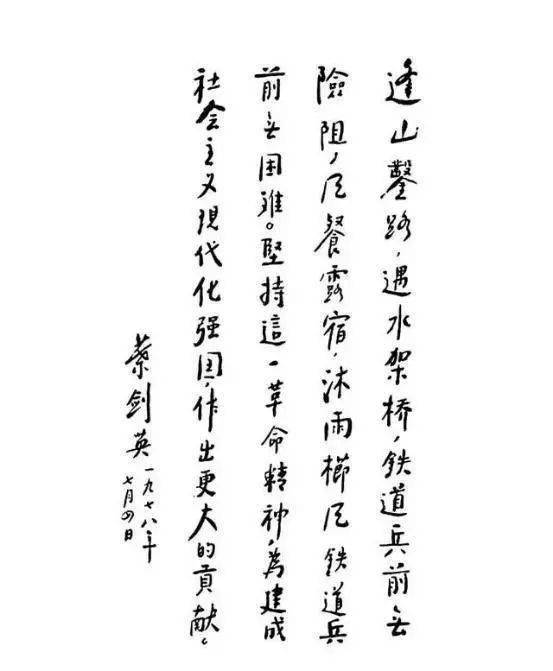 逢山鑿路，遇水架桥，鉄道兵前无
險阻，风餐露宿，沐雨櫛风鉄道兵
前无困难。堅持這一革命精神，為建成
社会主义現代化强国，作出更大的貢献。
葉剑英一九七八年
七月四日